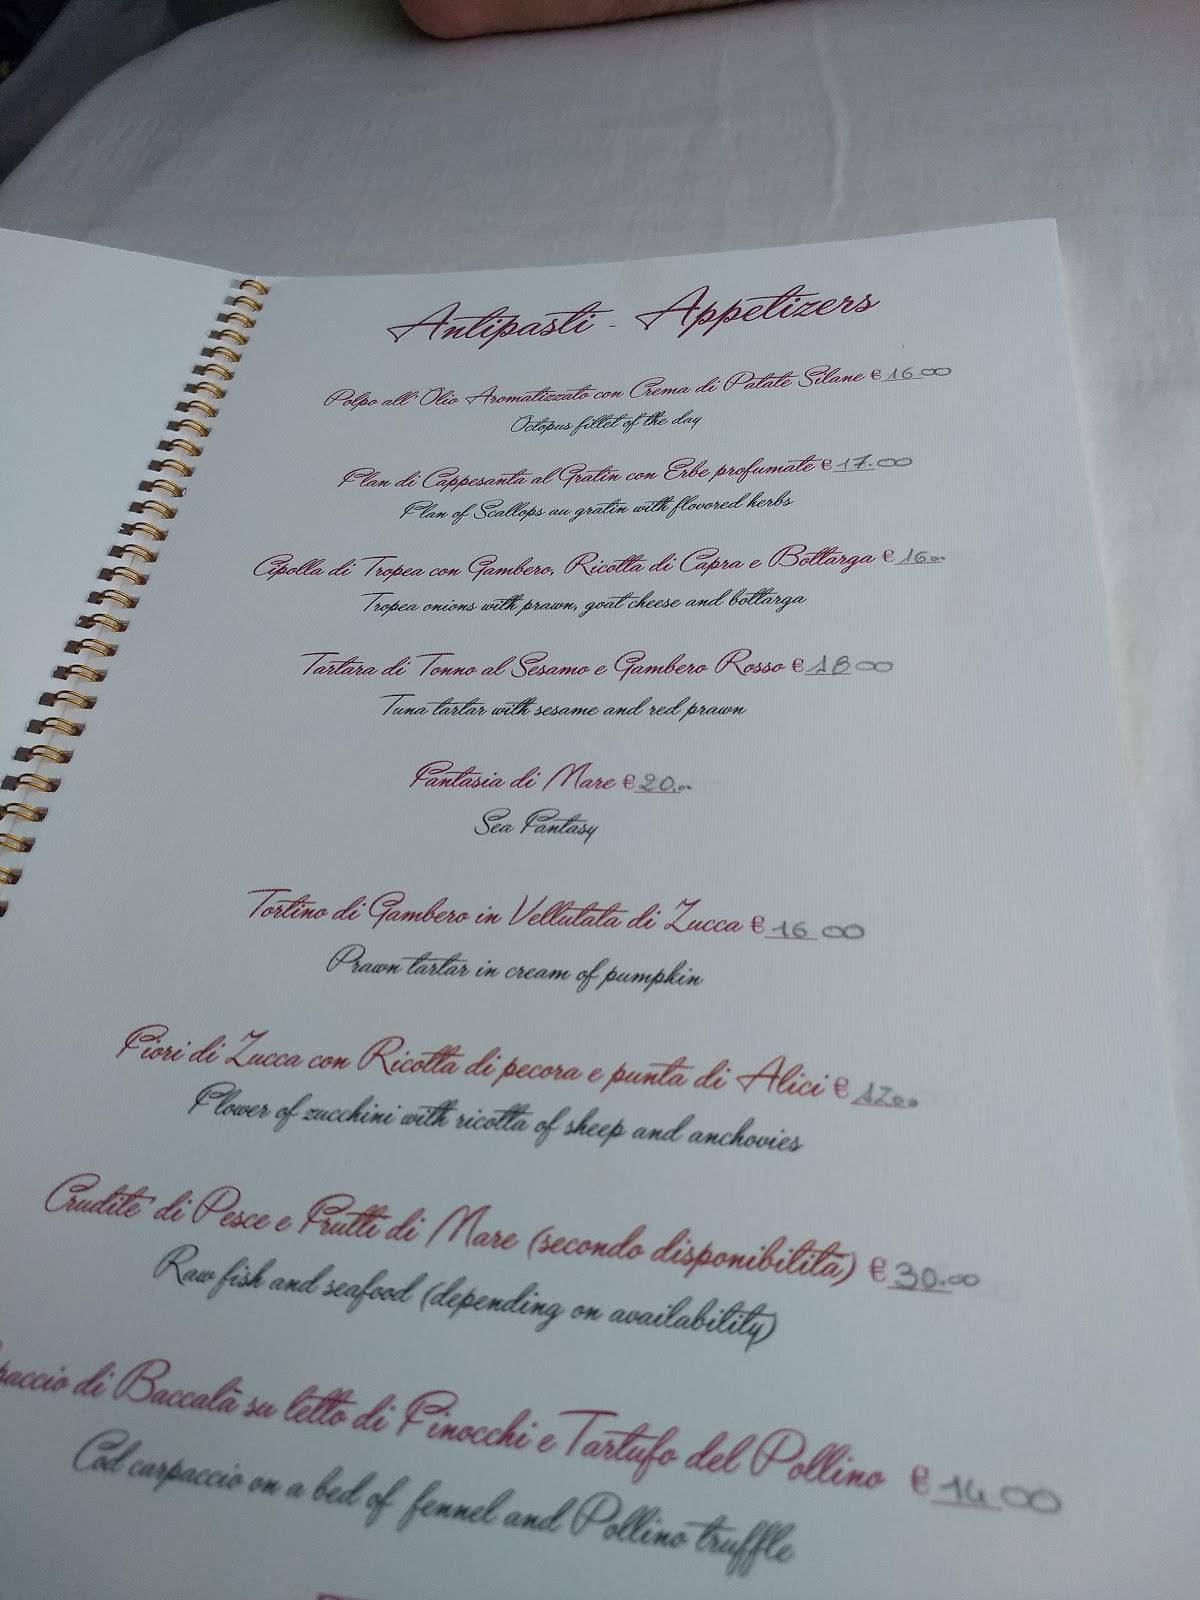 Antipasti - Appetizers
Polpo all'Olio Aromatizzato con Crema di Patate Silane € 16.00
Octopus fillet of the day
Flan di Cappesanta al Gratin con Erbe profumate € 17.00
Flan of Scallops au gratin with flovored herbs
Cipolla di Tropea con Gambero, Ricotta di Capra e Bottarga € 16.00
Tropea onions with prawn, goat cheese and bottarga
Tartara di Tonno al Sesamo e Gambero Rosso € 18.00
Tuna tartar with sesame and red prawn
Fantasia di Mare € 20.00
Sea Fantasy
Tortino di Gambero in Vellutata di Zucca € 16.00
Prawn tartar in cream of pumpkin
Fiori di Zucca con Ricotta di pecora e punta di Alici €
Flower of zucchini with ricotta of sheep and anchovies
Crudite' di Pesce e Frutti di Mare (secondo disponibilità) € 30.00
Raw fish and seafood (depending on availability)
paccio di Baccalà su letto di Finocchi e Tartufo del Pollino € 14.00
Cod carpaccio on a bed of fennel and Pollino truffle